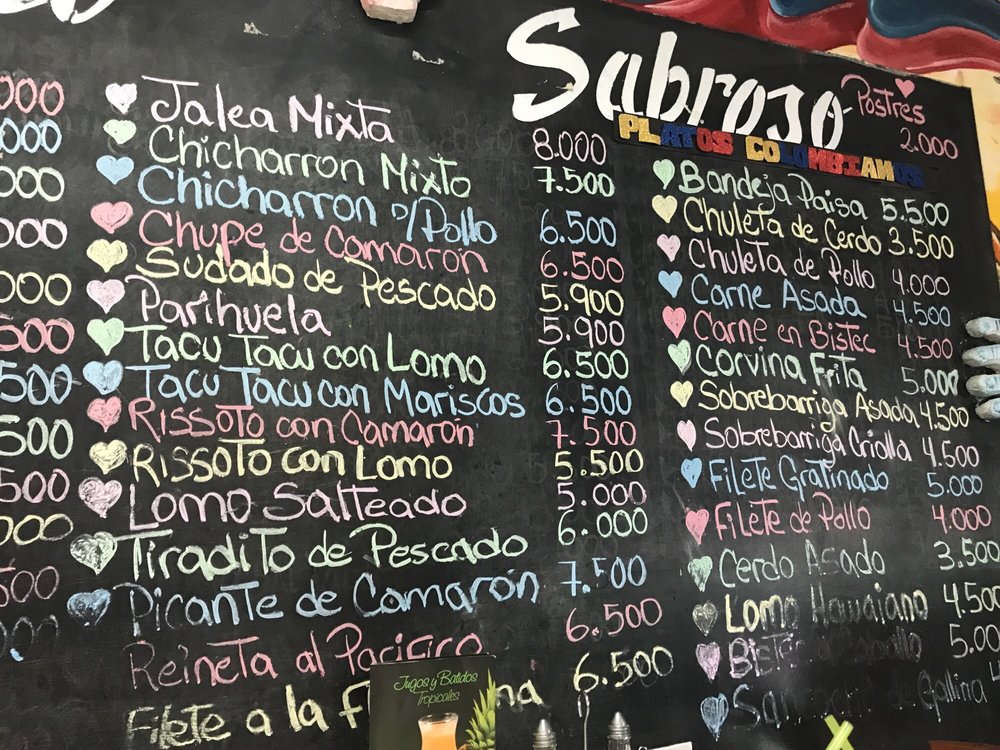 000
000
000
000
000
500
500
500
500
000
500
Jalea Mixta 8.000
Chicharron Mixto 7.500
Chicharron d/Pollo 6.500
Chupe de Camaron 6.500
Sudado de Pescado 5.900
Parihuela 5.900
Tacu Tacu con Lomo 6.500
Tacu Tacu con Mariscos 6.500
Rissoto con Camarón 7.500
Rissoto con Lomo 5.500
Lomo Salteado 5.000
Tiradito de Pescado 6.000
Picante de Camarón 7.500
Reineta al Pacifico 6.500
Filete a la 6.500
Jugos y Batidos
Tropicales
Sabroso
Postres
2.000
PLATOS COLOMBIANOS
Bandeja Paisa 5.500
Chuleta de Cerdo 3.500
Chuleta de Pollo 4.000
Carne Asada 4.500
Carne en Bistec 4.500
Corvina Frita 5.000
Sobrebarriga Asada 4.500
Sobrebarriga Criolla 4.500
Filete Gratinado 5.000
Filete de Pollo 4.000
Cerdo Asado 3.500
Lomo Hawaiano 4.500
Bistec 5.00
Gallina